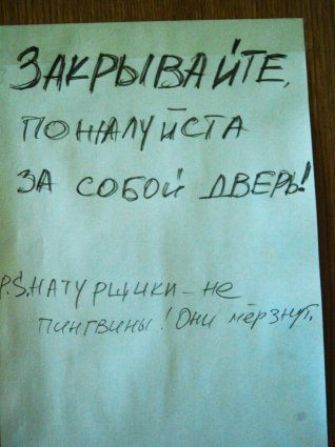 ЗАКРЫВАЙТЕ,
ПОЖАЛУЙСТА
ЗА СОБОЙ ДВЕРЬ!
P.S. НАТУРЩИКИ – НЕ
ПИНГВИНЫ! ОНИ МЁРЗНУТ.